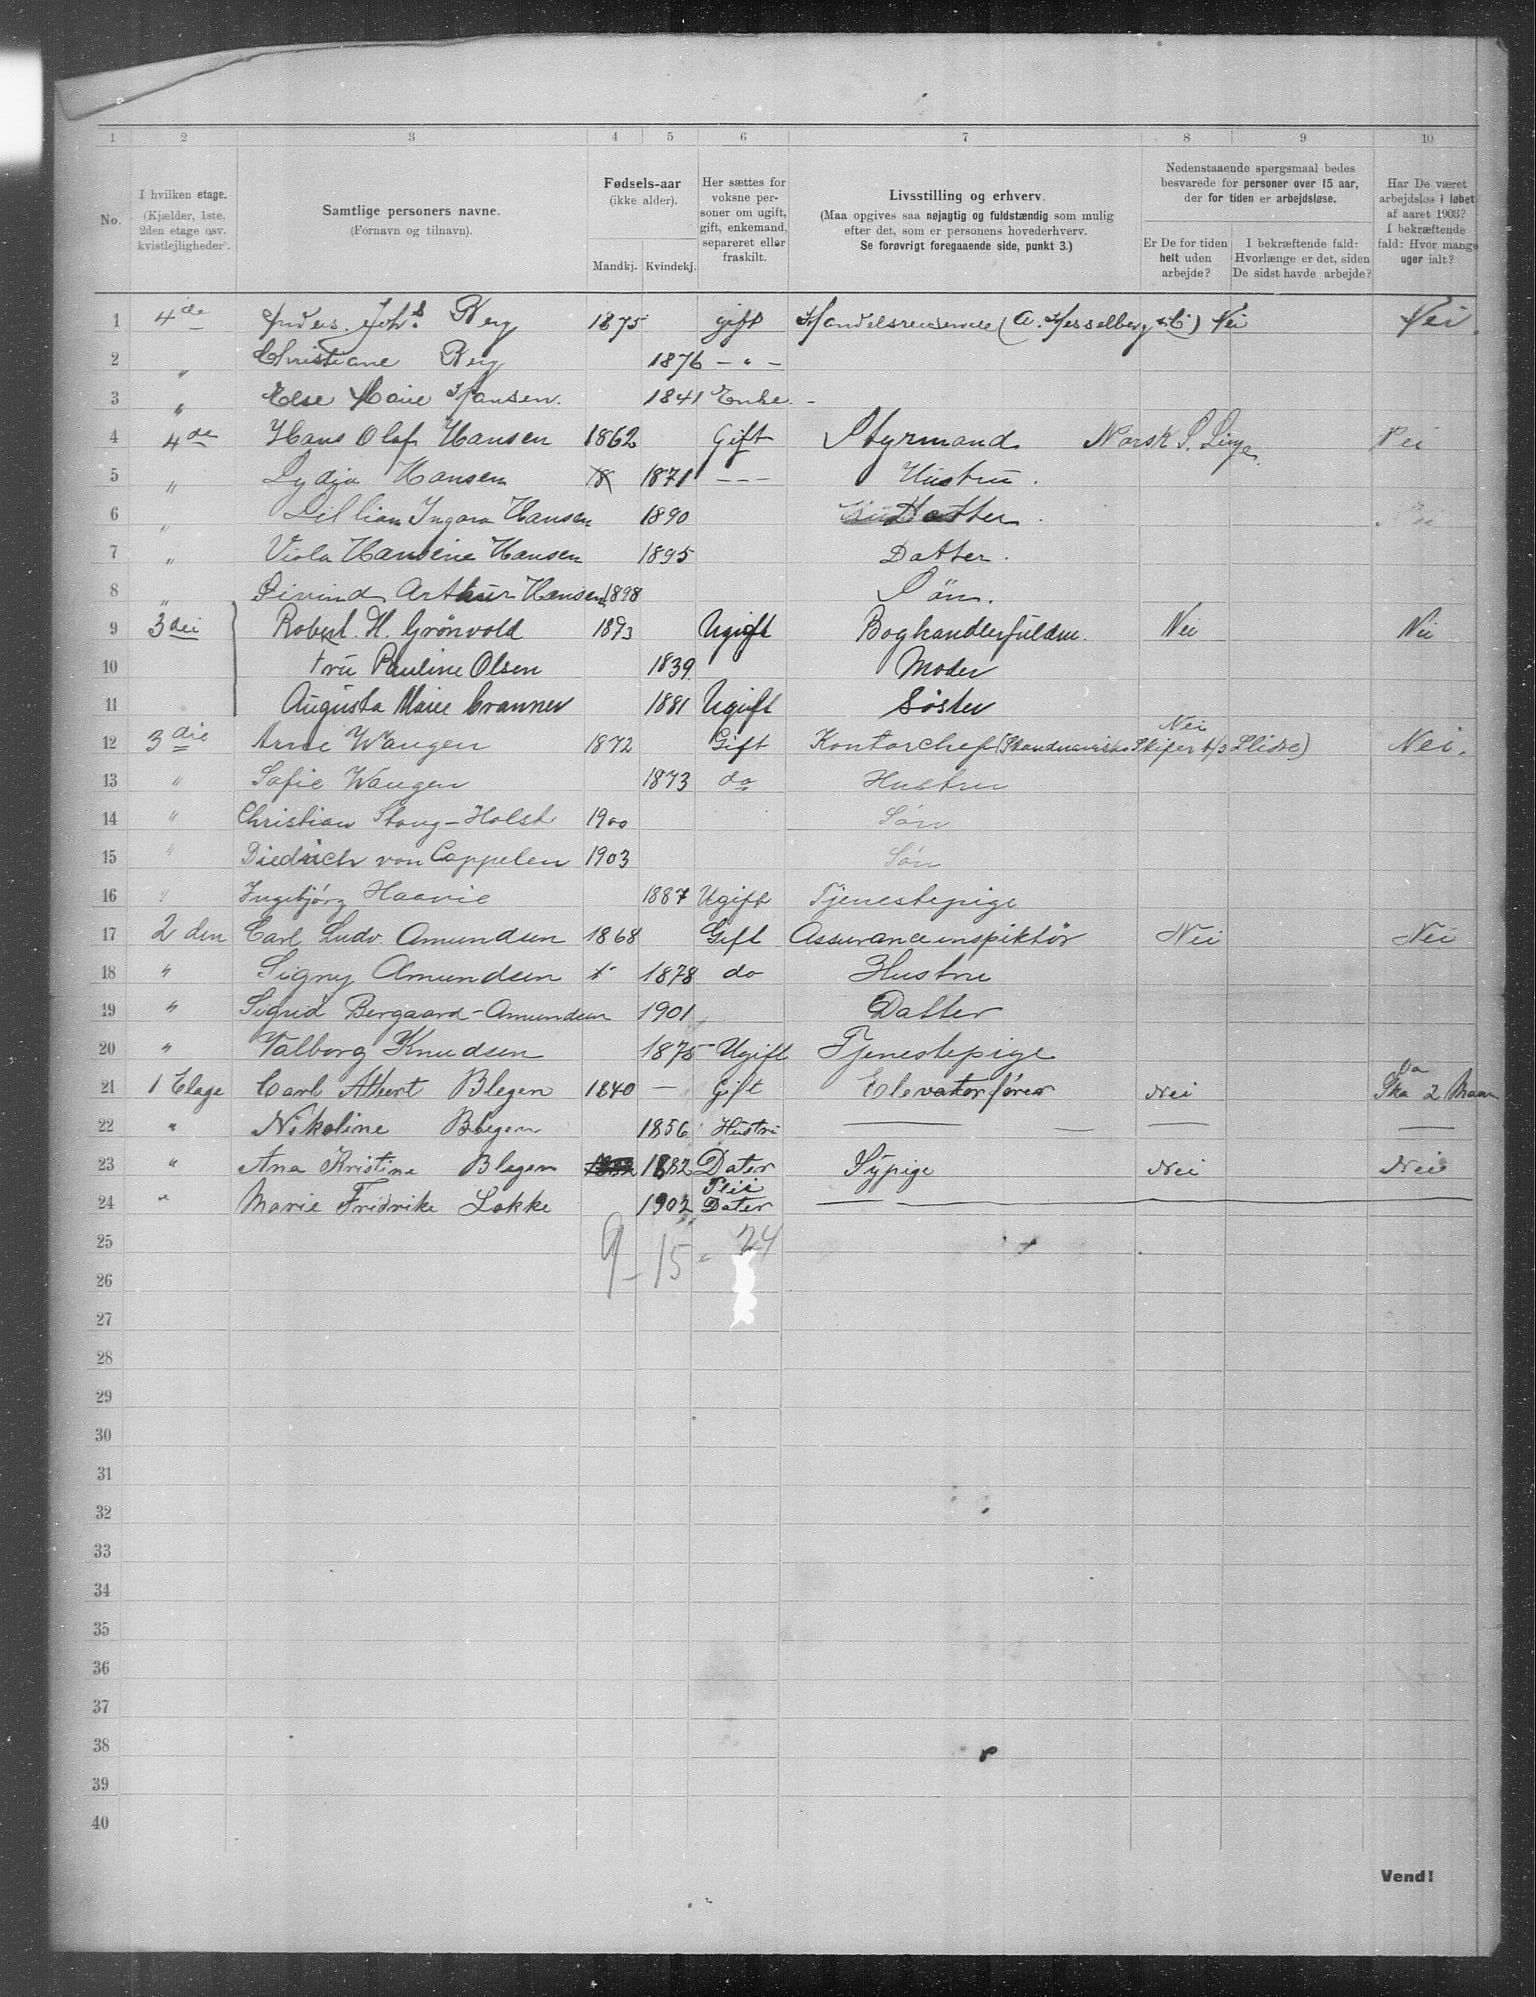 1 2 3 4 5 6 7 8 9 10
No.
I hvilken etage.
(Kjælder, 1ste,
2den etage osv.
kvistlejligheder).
Samtlige personers navne.
(Fornavn og tilnavn).
Fødsels-aar
(ikke alder).
Mandkj. Kvindekj.
Her sættes for
voksne per-
soner om ugift,
gift, enkemand,
separeret eller
fraskilt.
Livsstilling og erhverv.
(Maa opgives saa nøjagtig og fuldstændig som mulig
efter det, som er personens hovederhverv.
Se forøvrigt foregaaende side, punkt 3.)
Nedenstaaende spørgsmaal bedes
besvarede for personer over 15 aar,
der for tiden er arbejdsløse.
Er De for tiden
helt uden
arbejde?
I bekræftende fald:
Hvorlænge er det, siden
De sidst havde arbejde?
Har De været
arbejdsløs i løbet
af aaret 1903?
I bekræftende
fald: Hvor mange
uger ialt?
1 4de Anders Johs. Berg 1875 gift Handelsreisende (A. Hesselberg & C) Nei Nei.
2 " Christiane Berg 1876 - " -
3 " Else Marie Hansen. 1841 Enke. -
4 4de Hans Olaf Hansen 1862 Gift Styrmand Norsk S. Linje. Nei
5 " Lydja Hansen 1871 - - - Hustru.
6 " Lillian Ingara Hansen 1890 Datter.
7 " Viola Hansine Hansen 1895 Datter.
8 " Øivind Arthur Hansen 1898 Søn.
9 3dei Robert. H. Grönvold 1873 Ugift Boghandlerfuldm. Nei Nei
10 Fru Pauline Olsen 1839 Moder
11 Augusta Marie Cranner 1881 Ugift Søster
12 3die Arne Waugen 1872 Gift Kontorchef (Skandinavisk Skifer b/s Slidre) Nei Nei.
13 " Sofie Waugen 1873 do Hustru
14 " Christian Stang-Holst 1900 Søn
15 " Diedrich von Cappelen 1903 Søn
16 " Ingebjørg Haavie 1887 Ugift Tjenestepige
17 2den Carl Ludv. Amundsen 1868 Gift Assuranceinspiktør Nei Nei
18 " Signy Amundsen 1878 do Hustru
19 " Sigrid Bergaard-Amundsen 1901 Datter
20 " Valborg Knudsen 1875 Ugift Tjenestepige
21 1 Etage Carl Albert Blegen 1840 - Gift Elevatorfører Nei Ja 2 Maan
22 " Nikoline Blegen 1856 Hustru — — — —
23 " Ana Kristine Blegen 1882 Dater Sypige Nei Nei
24 " Marie Fridrike Lokke 1902 Plei Dater — —
25 9 - 15 = 24
26
27
28
29
30
31
32
33
34
35
36
37
38
39
40
Vend!